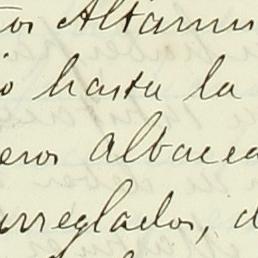 tos Altamir
o hasta la
eros albacea
arreglados, d